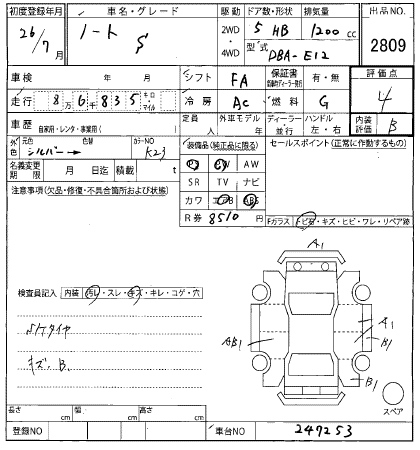 初度登録年月 車名・グレード 駆動 ドア数・形状 排気量 出品NO.
26/7月 ノート S 2WD・4WD 5 HB 1200cc 2809
型式 DBA-E12
車検 年 月 シフト FA 保証書 有・無 評価点
走行 8万6千835 キロ・マイル 冷房 AC 燃料 G 4
車歴 自家用・レンタ・事業用( ) 定員 人 外車モデル 年 ディーラー・並行 ハンドル 左・右 内装評価 B
外色 元色 シルバー 色替 → カラーNO K23 装備品(純正品に限る) セールスポイント(正常に作動するもの)
名義変更期限 月 日迄 積載 t PS PW AW
注意事項(欠品・修復・不具合箇所および状態) SR TV ナビ
カワ エアB ABS
R券 8510円 Fガラス トビ石・キズ・ヒビ・ワレ・リペア跡
検査員記入 内装 汚レ・スレ・キズ・キレ・コゲ・穴
A1
AB1
A1
B1
B1
スペア
キズ.B.
長さ cm 幅 cm 高さ cm
登録NO 車台NO 247253